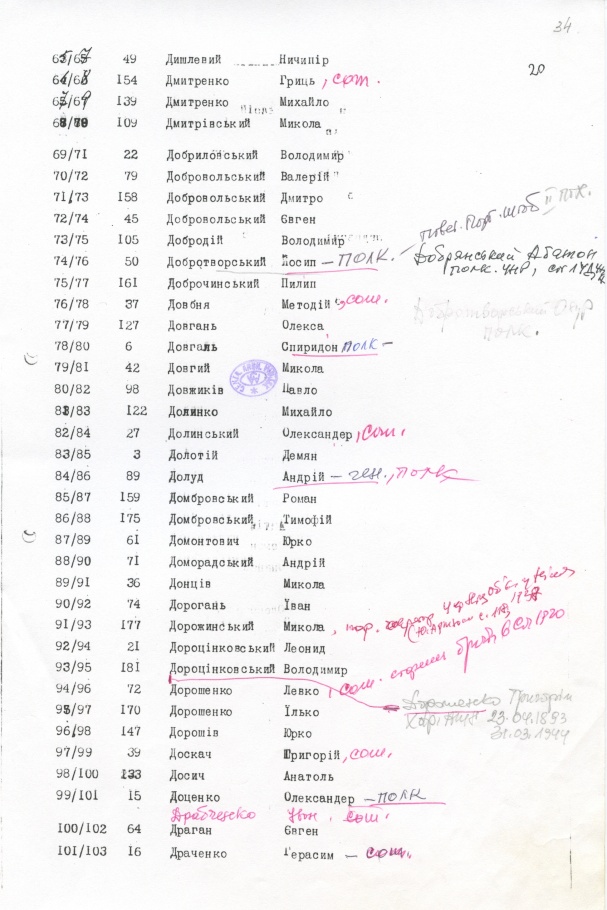 34
20
65/67 49 Дишлевий Ничипір
66/68 154 Дмитренко Гриць, сот.
67/69 139 Дмитренко Михайло
68/70 109 Дмитрівський Микола
69/71 22 Добрилонський Володимир
70/72 79 Добровольський Валерій
71/73 158 Добровольський Дмитро
72/74 45 Добровольський Євген
73/75 105 Добродій Володимир
74/76 50 Добротворський Йосип – ПОЛК.
Добрянський
полк. УНР,
75/77 161 Доброчинський Пилип
76/78 37 Довбня Методій, сот.
77/79 127 Довгань Олекса
полк.
78/80 6 Довгаль Спиридон ПОЛК –
79/81 42 Довгий Микола
80/82 98 Довжиків Павло
81/83 122 Долинко Михайло
82/84 27 Долинський Олександер, сот.
83/85 3 Долотій Демян
84/86 89 Долуд Андрій – ген., ПОЛК
85/87 159 Домбровський Роман
86/88 175 Домбровський Тимофій
87/89 61 Домонтович Юрко
88/90 71 Доморадський Андрій
89/91 36 Донців Микола
90/92 74 Дорогань Їван
91/93 177 Дорожинський Микола,
92/94 21 Дороцінковський Леонид
93/95 181 Дороцінковський Володимир
94/96 72 Дорошенко Левко, сот.
Дорошенко Григорій
95/97 170 Дорошенко Їлько
23.04.1893
31.03.1944
96/98 147 Дорошів Юрко
97/99 39 Доскач Григорій, сот.
98/100 133 Досич Анатоль
99/101 15 Доценко Олександер – ПОЛК
Драбченко Іван, сот.
100/102 64 Драган Євген
101/103 16 Драченко Герасим – сот.